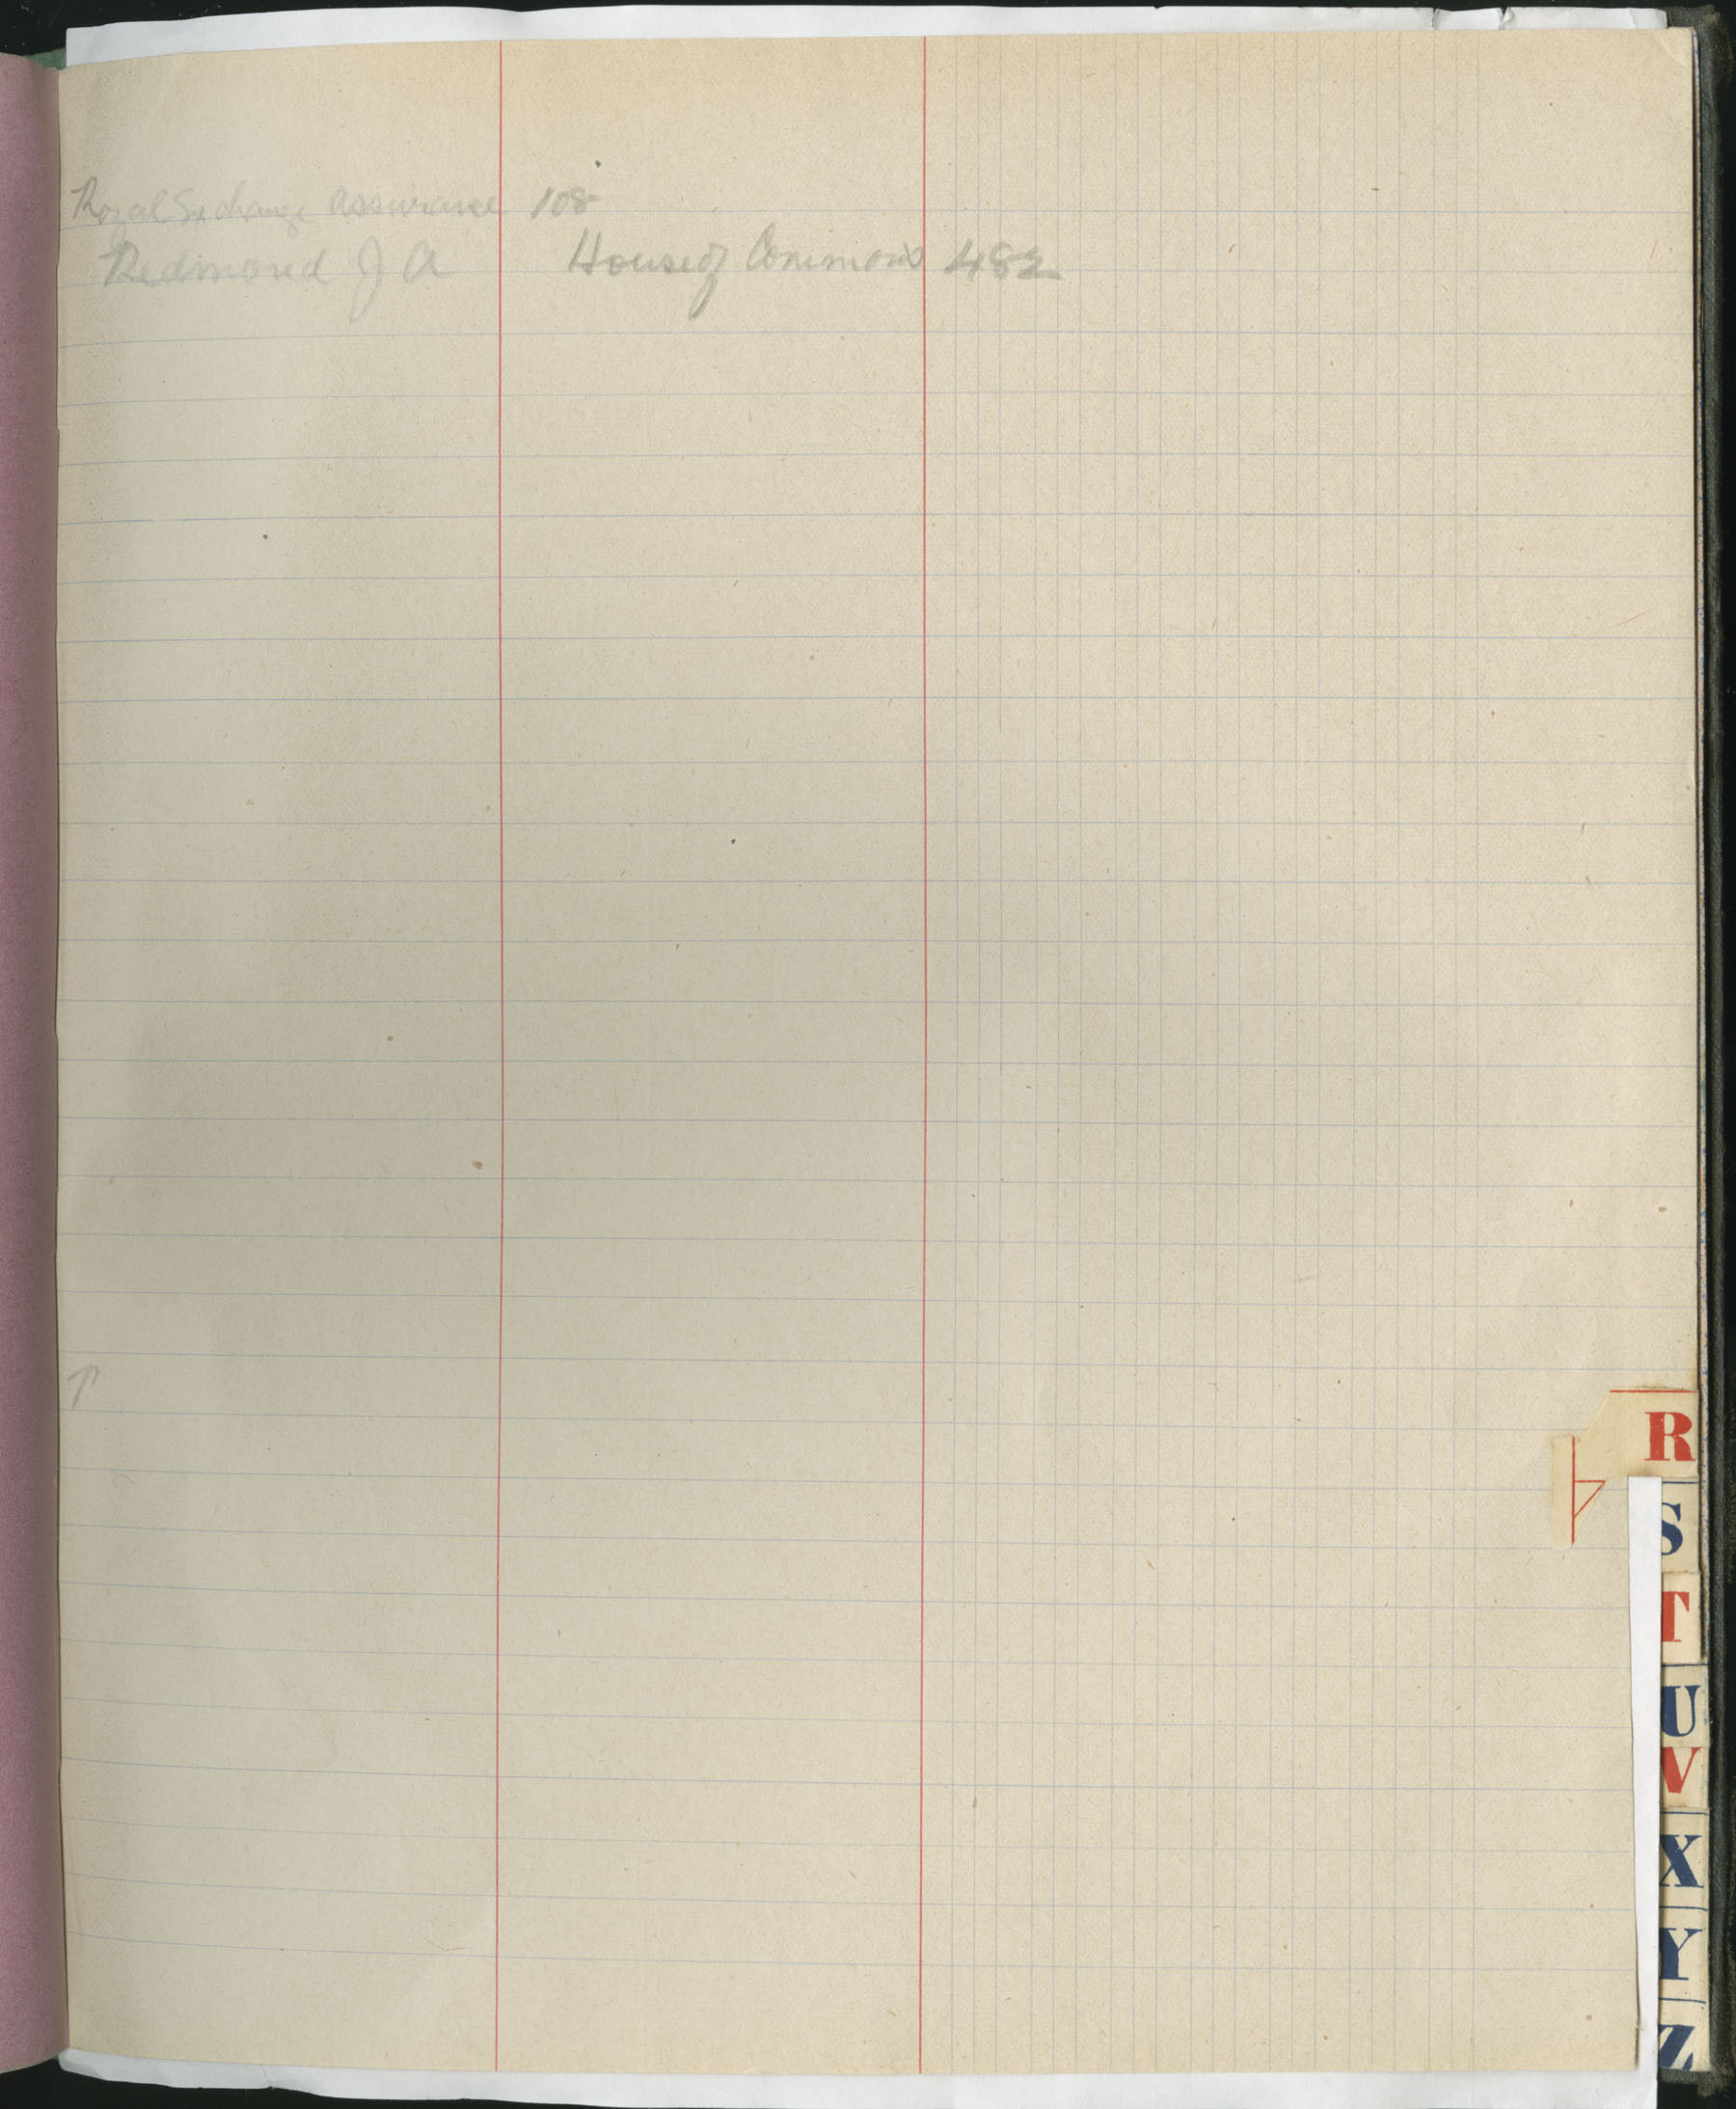 Royal Exchange Assurance 108
Redmond J A House of Commons 482
R
S
T
U
V
X
Y
Z